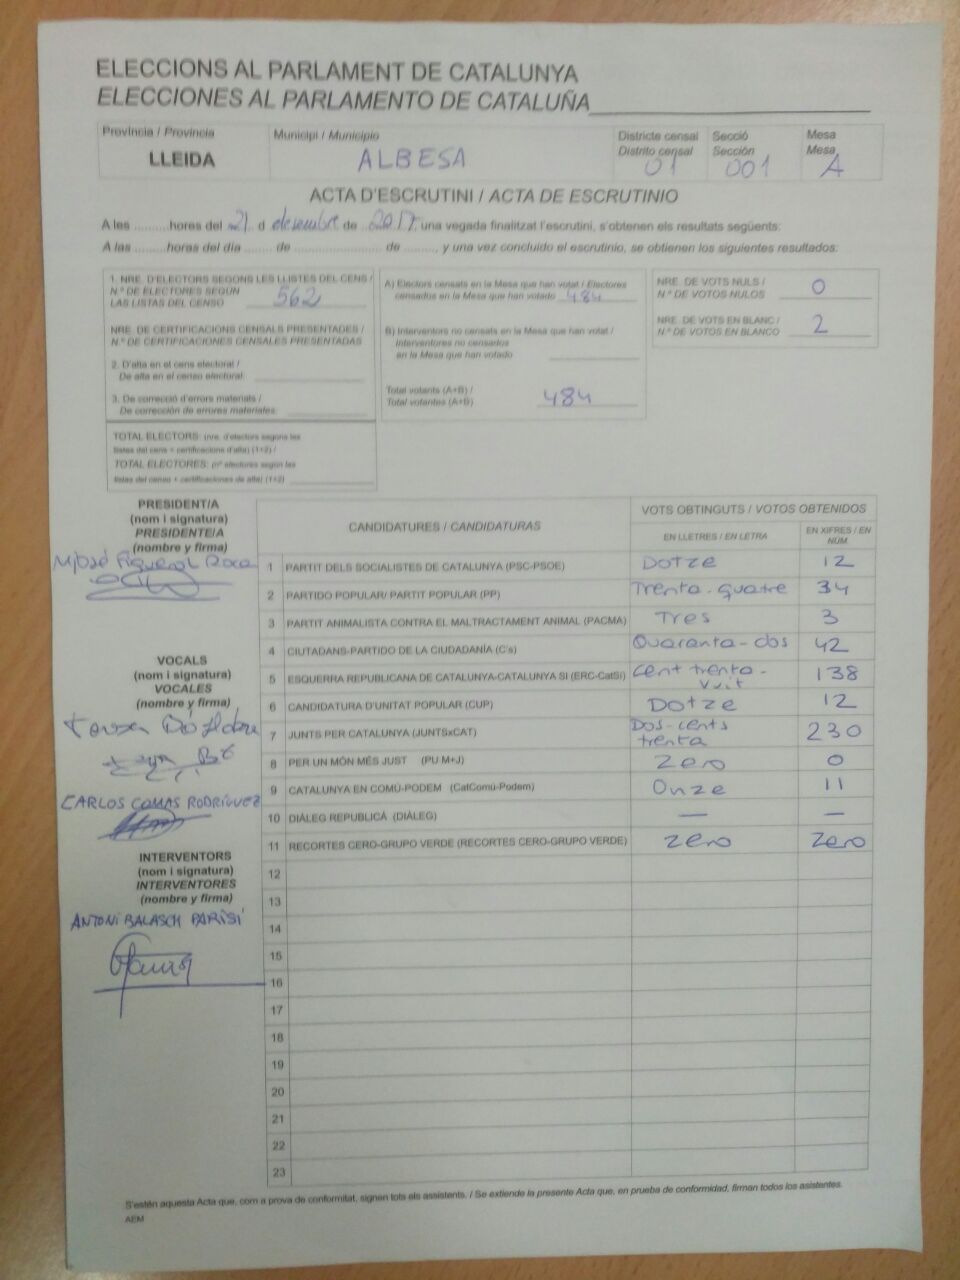 ELECCIONS AL PARLAMENT DE CATALUNYA
ELECCIONES AL PARLAMENTO DE CATALUÑA
Província / Provincia
LLEIDA
Municipi / Municipio
ALBESA
Districte censal
Distrito censal
01
Secció
Sección
001
Mesa
Mesa
A
ACTA D'ESCRUTINI / ACTA DE ESCRUTINIO
A les ..........hores del 21 d desembre de 2017, una vegada finalitzat l'escrutini, s'obtenen els resultats següents:
A las ..........horas del día ........ de ........................ de ........., y una vez concluido el escrutinio, se obtienen los siguientes resultados:
1. NRE. D'ELECTORS SEGONS LES LLISTES DEL CENS /
N.º DE ELECTORES SEGÚN
LAS LISTAS DEL CENSO 562
NRE. DE CERTIFICACIONS CENSALS PRESENTADES /
N.º DE CERTIFICACIONES CENSALES PRESENTADAS
2. D'alta en el cens electoral /
De alta en el censo electoral
3. De correcció d'errors materials /
De corrección de errores materiales
TOTAL ELECTORS: (nre. d'electors segons les
llistes del cens + certificacions d'alta) (1+2) /
TOTAL ELECTORES: (nº electores según las
listas del censo + certificaciones de alta) (1+2)
A) Electors censats en la Mesa que han votat / Electores
censados en la Mesa que han votado 484
B) Interventors no censats en la Mesa que han votat /
Interventores no censados
en la Mesa que han votado
Total votants (A+B) /
Total votantes (A+B) 484
NRE. DE VOTS NULS /
N.º DE VOTOS NULOS 0
NRE. DE VOTS EN BLANC /
N.º DE VOTOS EN BLANCO 2
PRESIDENT/A
(nom i signatura)
PRESIDENTE/A
(nombre y firma)
VOCALS
(nom i signatura)
VOCALES
(nombre y firma)
CARLOS COMAS RODRÍGUEZ
INTERVENTORS
(nom i signatura)
INTERVENTORES
(nombre y firma)
ANTONI BALASCH PARISÍ
CANDIDATURES / CANDIDATURAS
VOTS OBTINGUTS / VOTOS OBTENIDOS
EN LLETRES / EN LETRA
EN XIFRES / EN
NÚM.
1 PARTIT DELS SOCIALISTES DE CATALUNYA (PSC-PSOE) Dotze 12
2 PARTIDO POPULAR/ PARTIT POPULAR (PP) Trenta-quatre 34
3 PARTIT ANIMALISTA CONTRA EL MALTRACTAMENT ANIMAL (PACMA) Tres 3
4 CIUTADANS-PARTIDO DE LA CIUDADANÍA (C's) Quaranta-dos 42
5 ESQUERRA REPUBLICANA DE CATALUNYA-CATALUNYA SÍ (ERC-CatSí) Cent trenta-vuit 138
6 CANDIDATURA D'UNITAT POPULAR (CUP) Dotze 12
7 JUNTS PER CATALUNYA (JUNTSxCAT) Dos-cents trenta 230
8 PER UN MÓN MÉS JUST (PU M+J) zero 0
9 CATALUNYA EN COMÚ-PODEM (CatComú-Podem) Onze 11
10 DIÀLEG REPUBLICÀ (DIÀLEG) — —
11 RECORTES CERO-GRUPO VERDE (RECORTES CERO-GRUPO VERDE) zero zero
12
13
14
15
16
17
18
19
20
21
22
23
S'estén aquesta Acta que, com a prova de conformitat, signen tots els assistents. / Se extiende la presente Acta que, en prueba de conformidad, firman todos los asistentes.
AEM